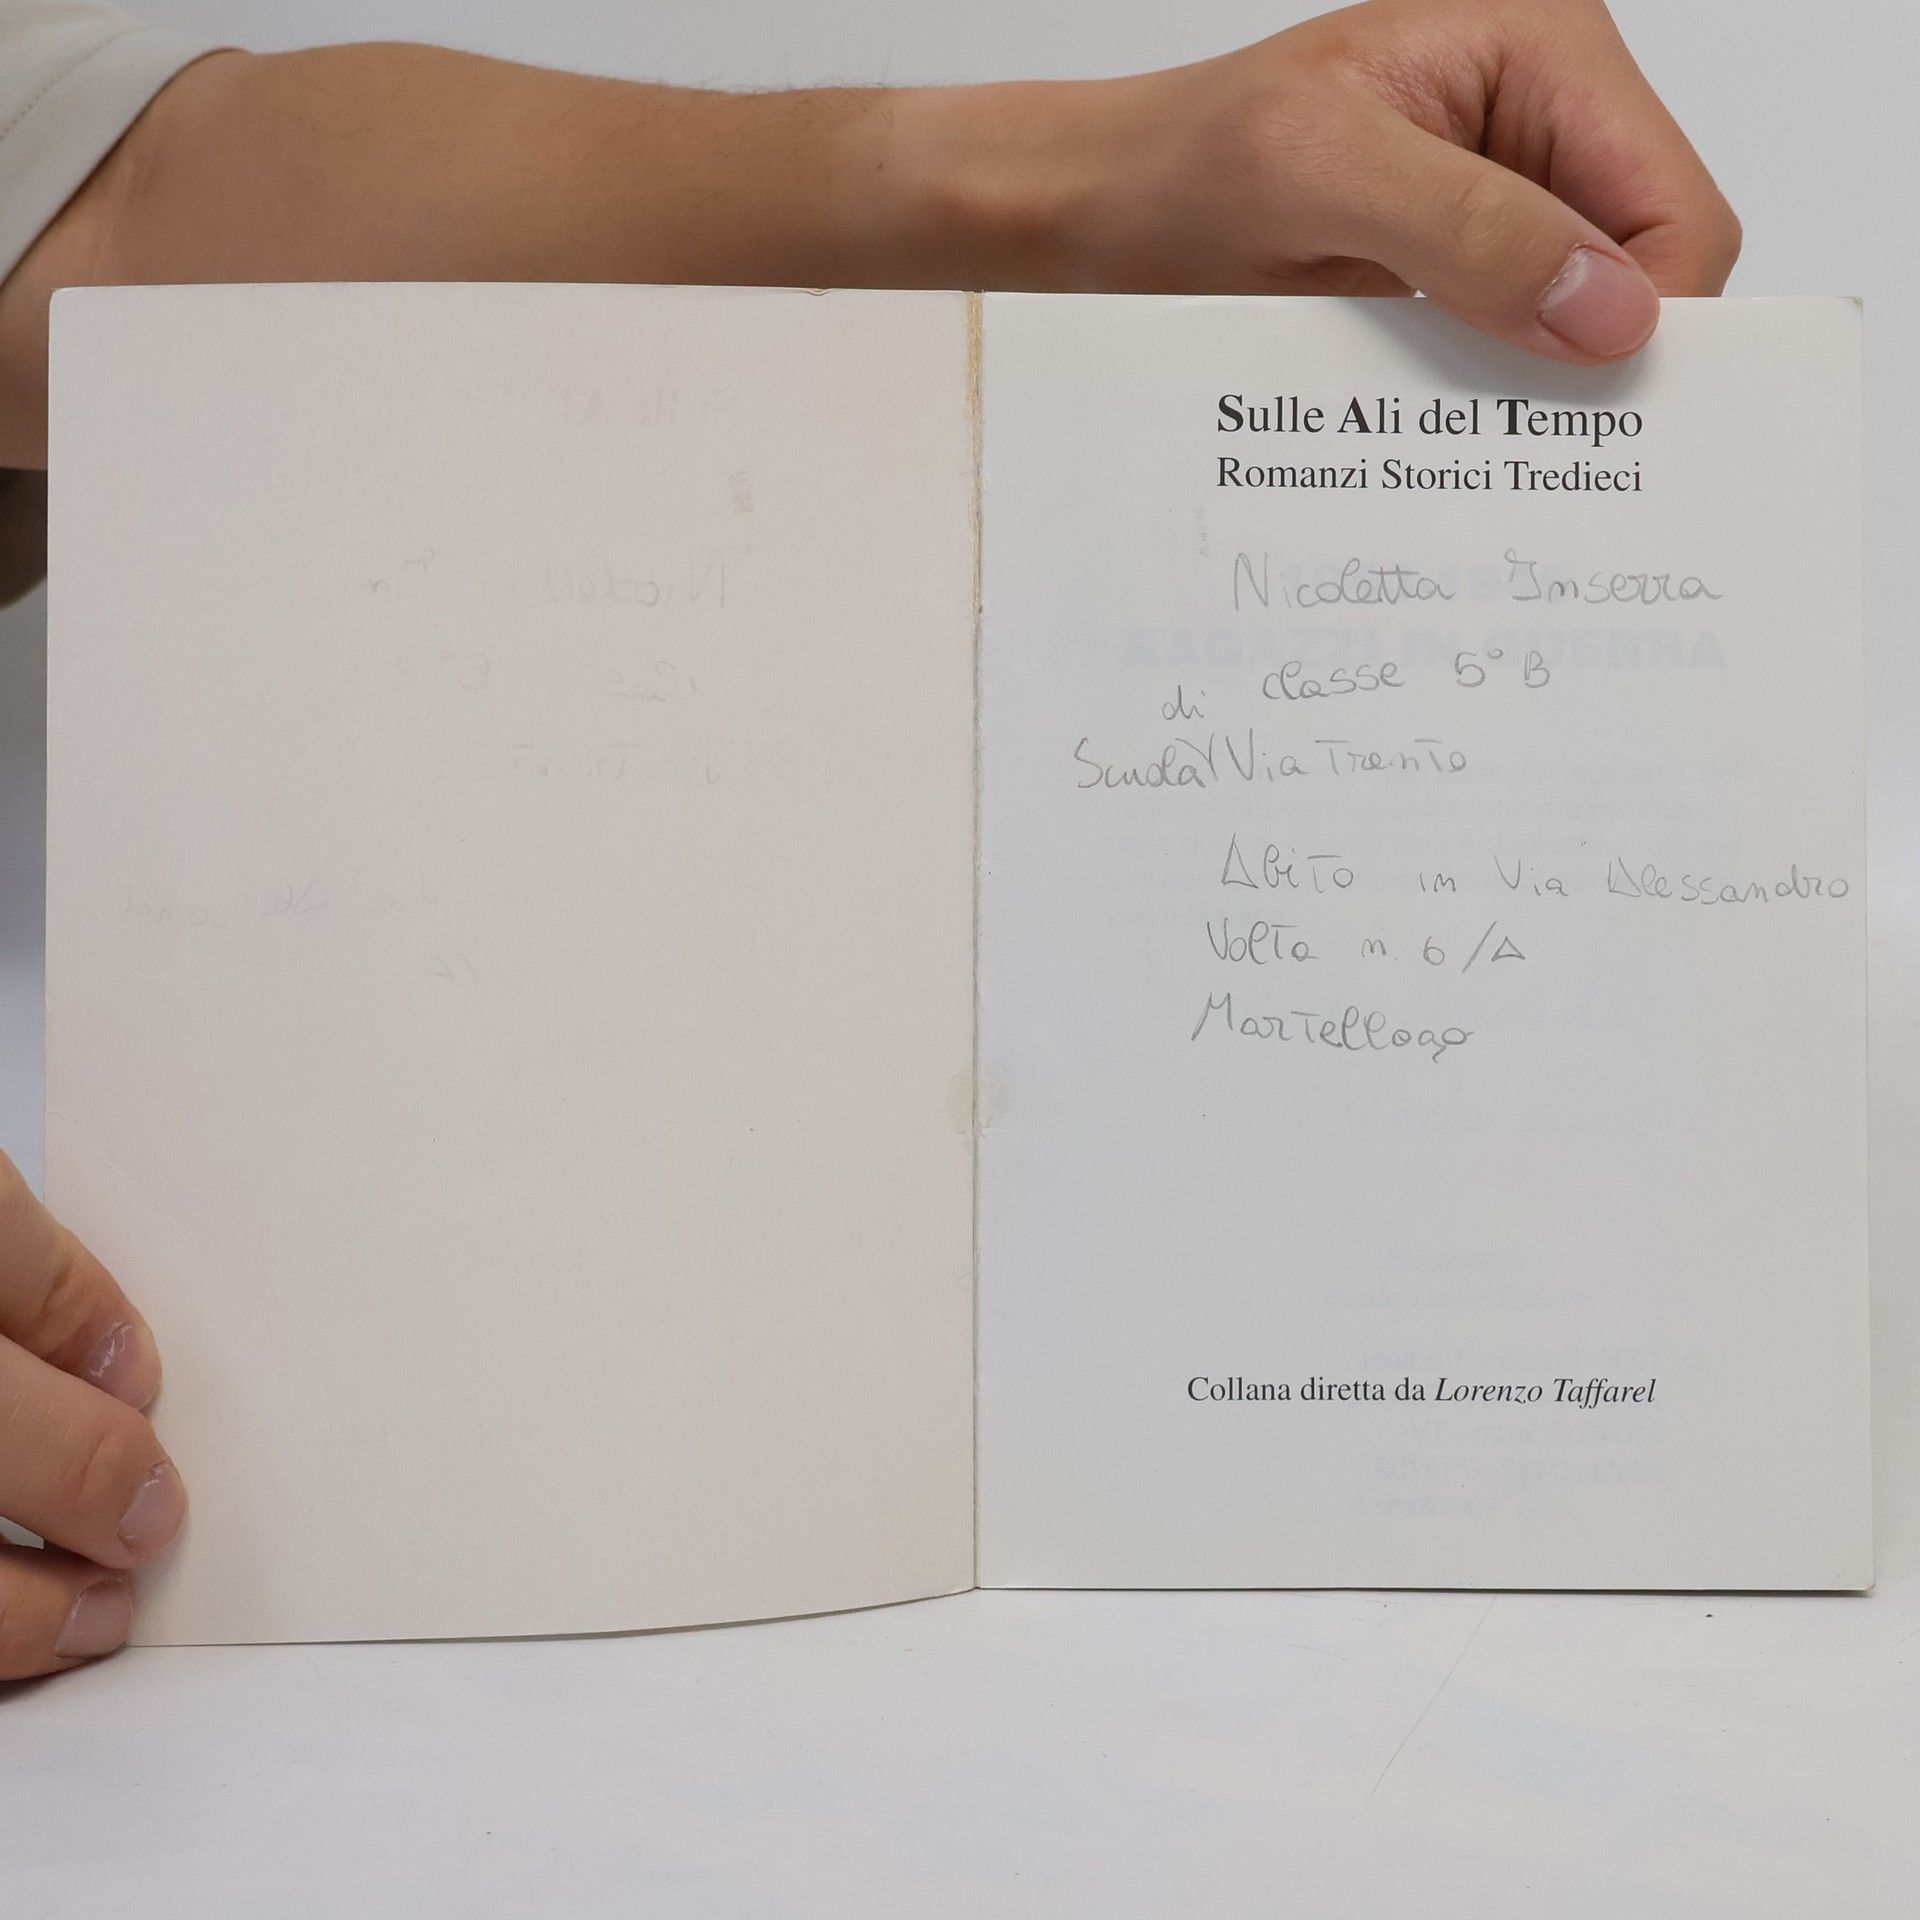 Sulle Ali del Tempo
Romanzi Storici Tredieci
Nicoletta Inserra
classe 5° B
di
Scuola Via Trento
Abito in Via Alessandro
Volta n. 6/A
Martellago
Collana diretta da Lorenzo Taffarel